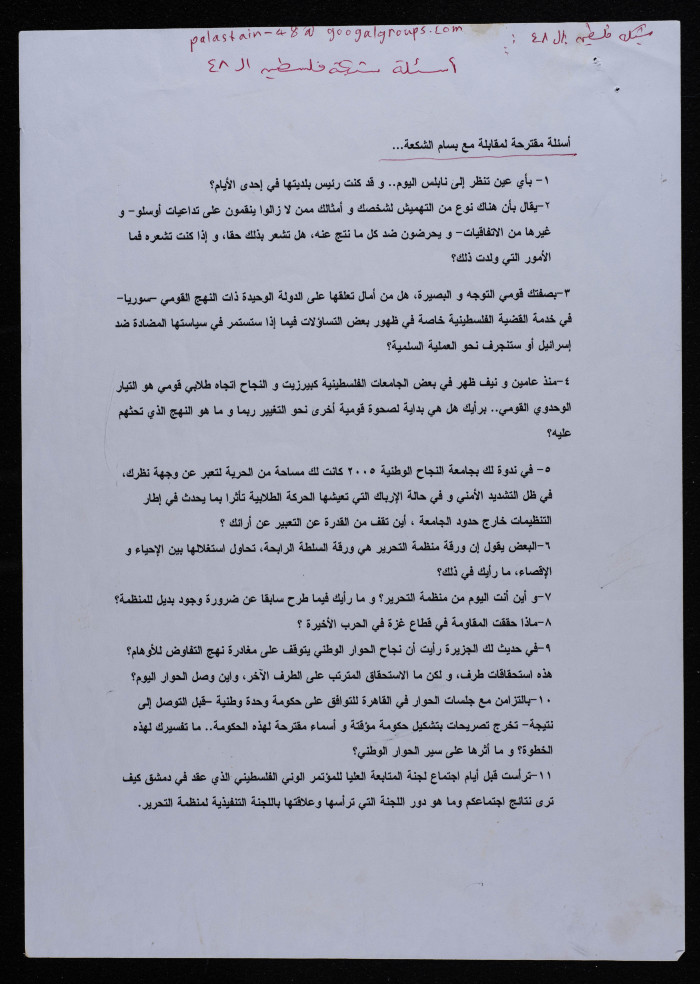 palastain-48@googalgroups.com
شبكة فلسطين ال ٤٨ :
أسئلة شبكة فلسطين ال ٤٨
أسئلة مقترحة لمقابلة مع بسام الشكعة...
١- بأي عين تنظر إلى نابلس اليوم.. و قد كنت رئيس بلديتها في إحدى الأيام؟
٢-يقال بأن هناك نوع من التهميش لشخصك و أمثالك ممن لا زالوا ينقمون على تداعيات أوسلو- و
غيرها من الاتفاقيات- و يحرضون ضد كل ما نتج عنه، هل تشعر بذلك حقا، و إذا كنت تشعره فما
الأمور التي ولدت ذلك؟
٣-بصفتك قومي التوجه و البصيرة، هل من أمال تعلقها على الدولة الوحيدة ذات النهج القومي -سوريا-
في خدمة القضية الفلسطينية خاصة في ظهور بعض التساؤلات فيما إذا ستستمر في سياستها المضادة ضد
إسرائيل أو ستنجرف نحو العملية السلمية؟
٤-منذ عامين و نيف ظهر في بعض الجامعات الفلسطينية كبيرزيت و النجاح اتجاه طلابي قومي هو التيار
الوحدوي القومي.. برأيك هل هي بداية لصحوة قومية أخرى نحو التغيير ربما و ما هو النهج الذي تحثهم
عليه؟
٥- في ندوة لك بجامعة النجاح الوطنية ٢٠٠٥ كانت لك مساحة من الحرية لتعبر عن وجهة نظرك،
في ظل التشديد الأمني و في حالة الإرباك التي تعيشها الحركة الطلابية تأثرا بما يحدث في إطار
التنظيمات خارج حدود الجامعة ، أين تقف من القدرة عن التعبير عن أرائك ؟
٦-البعض يقول إن ورقة منظمة التحرير هي ورقة السلطة الرابحة، تحاول استغلالها بين الإحياء و
الإقصاء، ما رأيك في ذلك؟
٧-و أين أنت اليوم من منظمة التحرير؟ و ما رأيك فيما طرح سابقا عن ضرورة وجود بديل للمنظمة؟
٨-ماذا حققت المقاومة في قطاع غزة في الحرب الأخيرة ؟
٩-في حديث لك الجزيرة رأيت أن نجاح الحوار الوطني يتوقف على مغادرة نهج التفاوض للأوهام؟
هذه استحقاقات طرف، و لكن ما الاستحقاق المترتب على الطرف الآخر، واين وصل الحوار اليوم؟
١٠-بالتزامن مع جلسات الحوار في القاهرة للتوافق على حكومة وحدة وطنية -قبل التوصل إلى
نتيجة- تخرج تصريحات بتشكيل حكومة مؤقتة و أسماء مقترحة لهذه الحكومة.. ما تفسيرك لهذه
الخطوة؟ و ما أثرها على سير الحوار الوطني؟
١١-ترأست قبل أيام اجتماع لجنة المتابعة العليا للمؤتمر الوني الفلسطيني الذي عقد في دمشق كيف
ترى نتائج اجتماعكم وما هو دور اللجنة التي ترأسها وعلاقتها باللجنة التنفيذية لمنظمة التحرير.